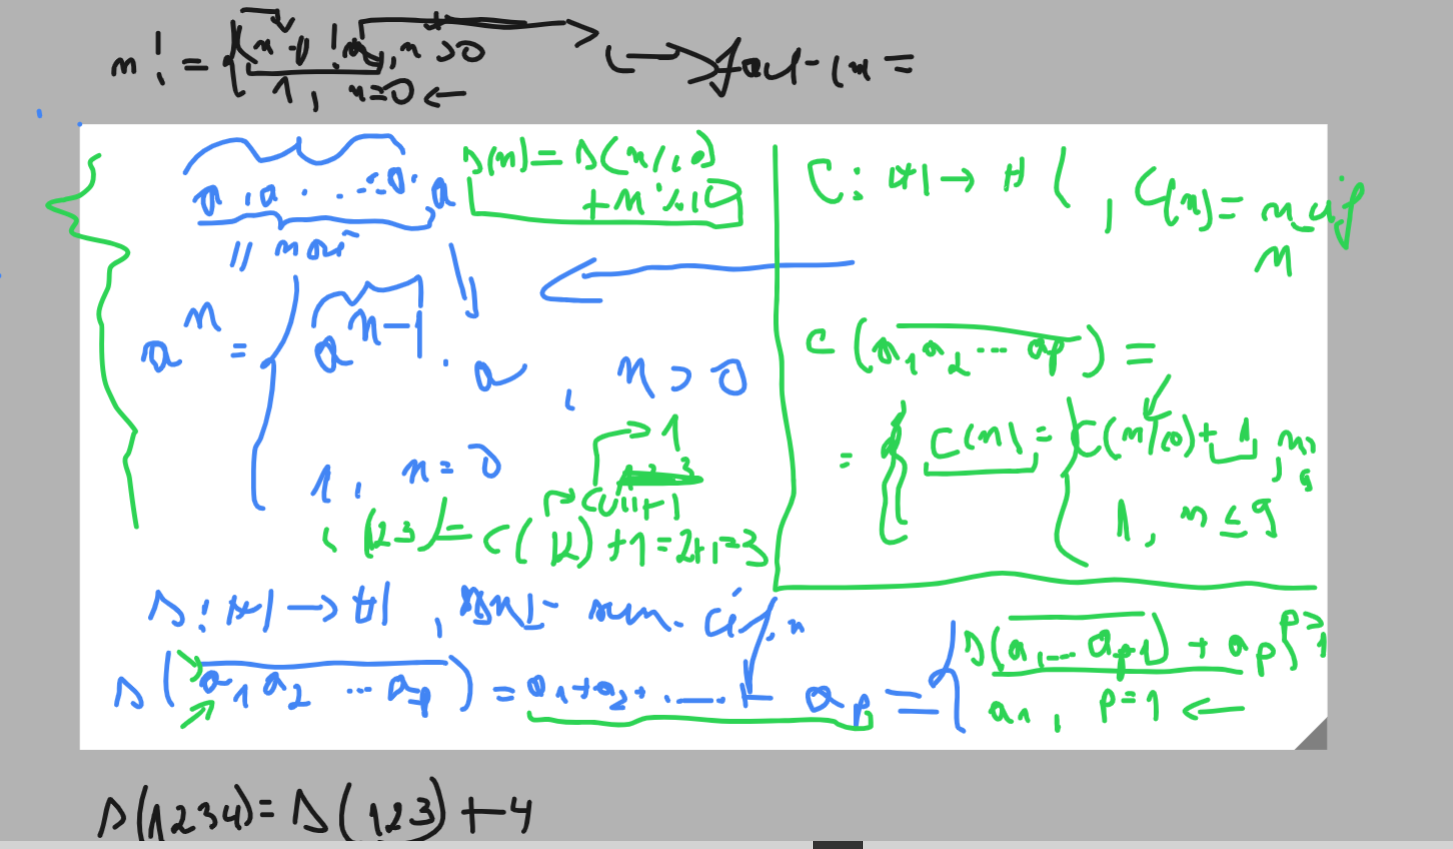 n! = { (n-1)! n, n > 0
1, n=0 ←
a . a . ... . a . a
n ori
s(n) = s(n/10)
+ n % 10
a^n = { a^{n-1} . a , n > 0
1, n = 0
C: ℕ → ℕ, C(n) = n
n
c(a_1 a_2 ... a_p) =
= { c(n) = { c(n/10) + 1, n > 9
1, n ≤ 9
→ 1
→ c(1)+1
c(123) = c(12) + 1 = 2+1 = 3
s: ℕ → ℕ, s(n) = sum. cif. n
s(a_1 a_2 ... a_p) = a_1 + a_2 + ..... + a_p = { s(a_1 ... a_{p-1}) + a_p, p > 1
a_1, p = 1 ←
s(1234) = s(123) + 4